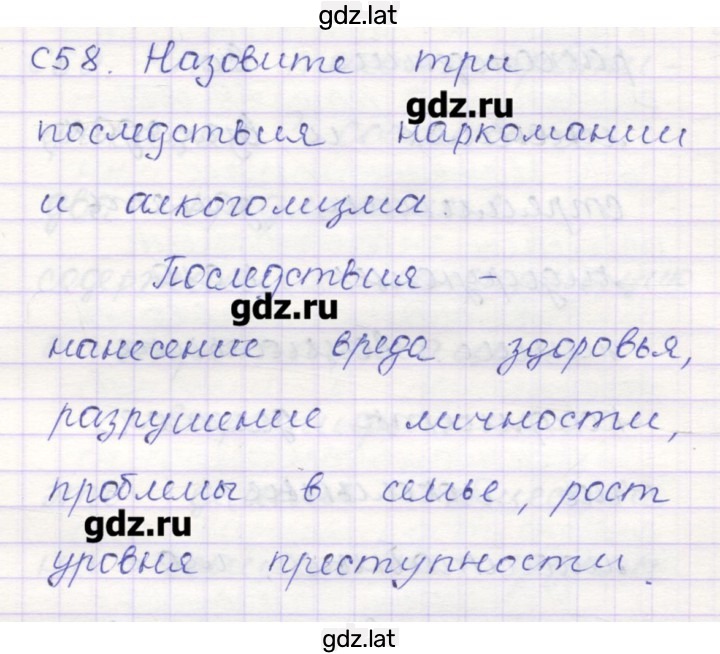 gdz.lat
С58. Назовите три
gdz.ru
последствия наркомании
и алкоголизма.
Последствия -
gdz.ru
нанесение вреда здоровья,
разрушение личности,
проблемы в семье, рост
gdz.ru
уровня преступности.
gdz.lat